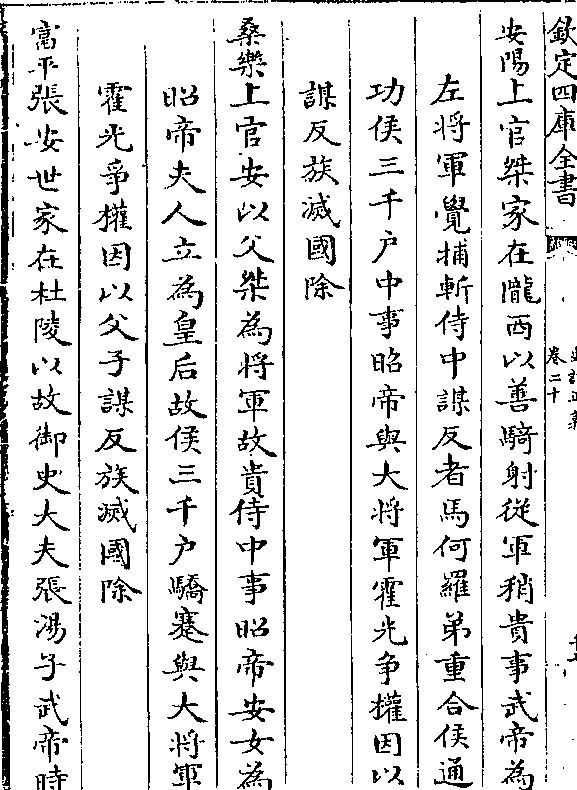 欽定四庫全書
卷二十
安陽上官桀家在隴西以善騎射從軍稍貴事武帝為
左將軍覺捕斬侍中謀反者馬何羅弟重合侯通
功侯三千户中事昭帝與大將軍霍光争權因以
謀反族滅國除
桑樂上官安以父桀為將軍故貴侍中事昭帝安女為
昭帝夫人立為皇后故侯三千户驕蹇與大將軍
霍光爭權因以父子謀反族滅國除
富平張安世家在杜陵以故御史大夫張湯子武帝時